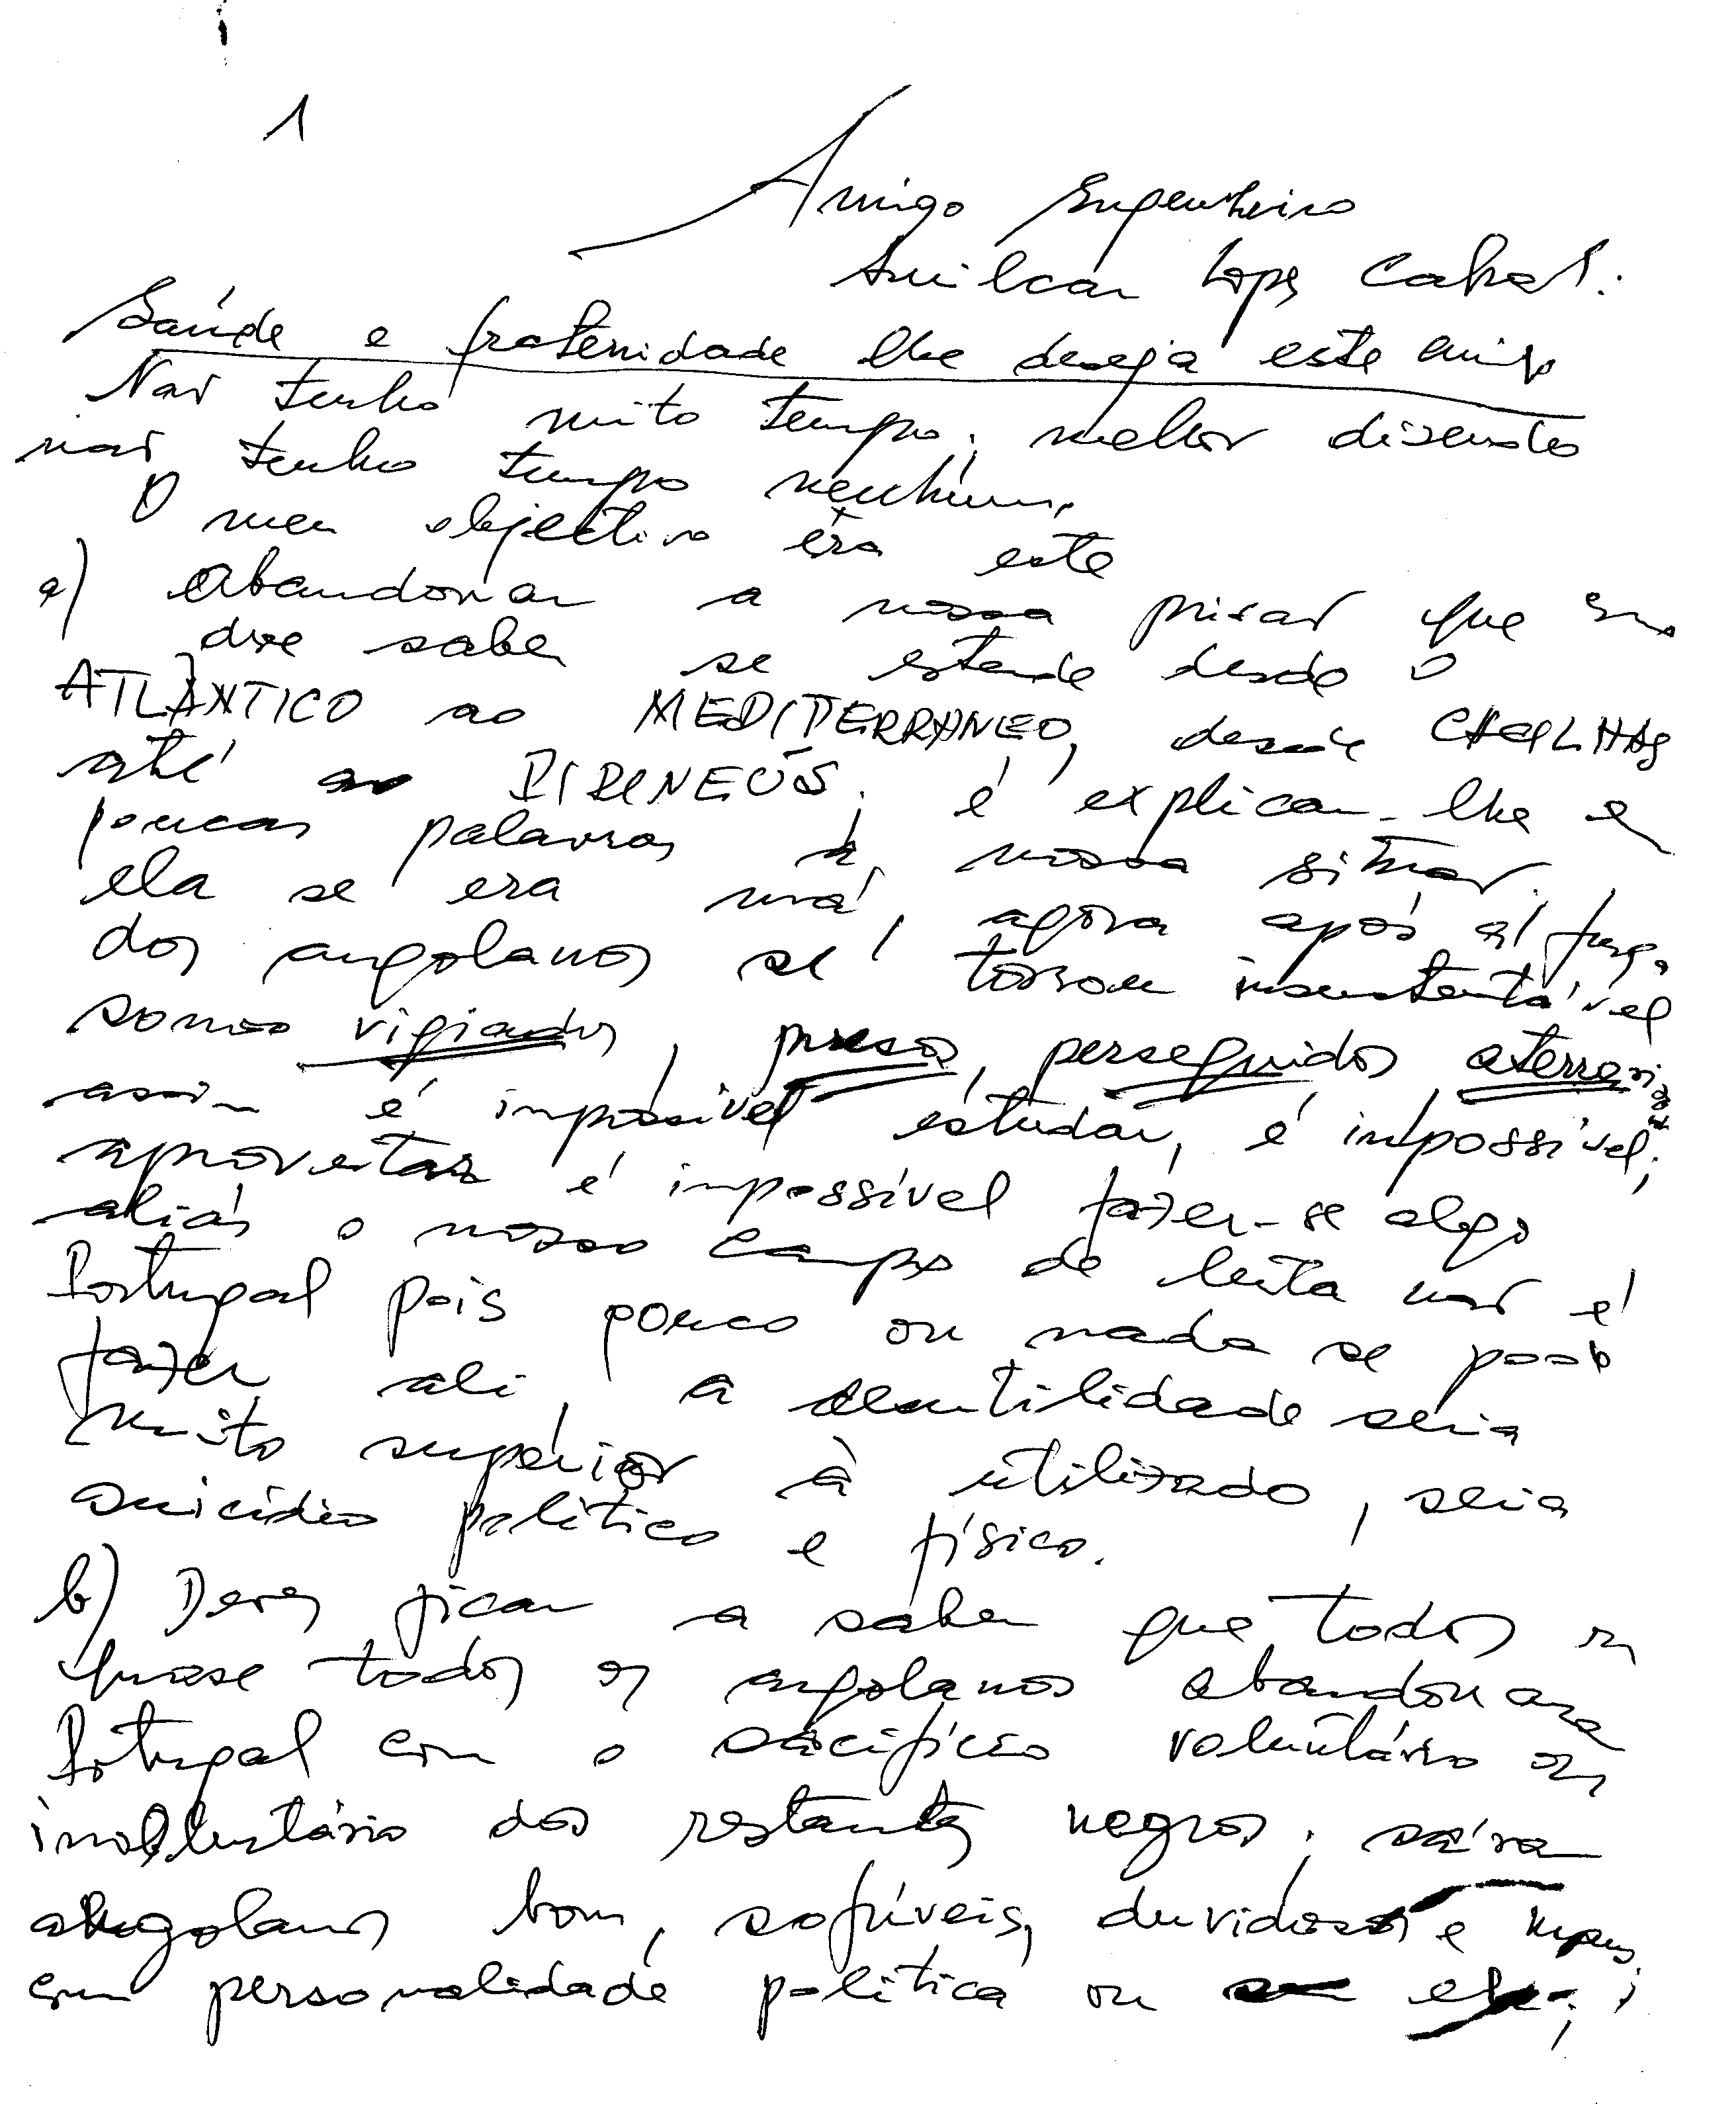 1
Amigo Engenheiro
Amilcar Lopes Cabral:
Saúde e fraternidade lhe deseja este amigo
Não tenho muito tempo; melhor dizendo
não tenho tempo nenhum.
O meu objectivo éra este
a) abandonar a nossa prisão que
saber se estende desde o
ATLÂNTICO ao MEDITERRANEO, desde CACILHAS
até ao PIRINEUS; é explicar-lhe em
poucas palavras a nossa situção.
ela se era má, agora após a fuga
dos angolanos se tornou insustentável
somos vigiados, presos, perseguidos aterrorizados
assim é impossível estudar, é impossível;
aproveitar é impossível fazer-se algo
aliás o nosso campo de luta não é
Portugal pois pouco ou nada se pode
fazer ali, a utilidade seria
muito supérior à utilizado, seria
suicídio político e físico.
b) Deves ficar a saber que todos ou
quase todos os angolanos abandonaram
Portugal com o sacifício voluntário ou
involuntário dos restantes negros; saíram
angolanos bons, sofríveis, duvidosos e
com personalidade política ou sem ela;